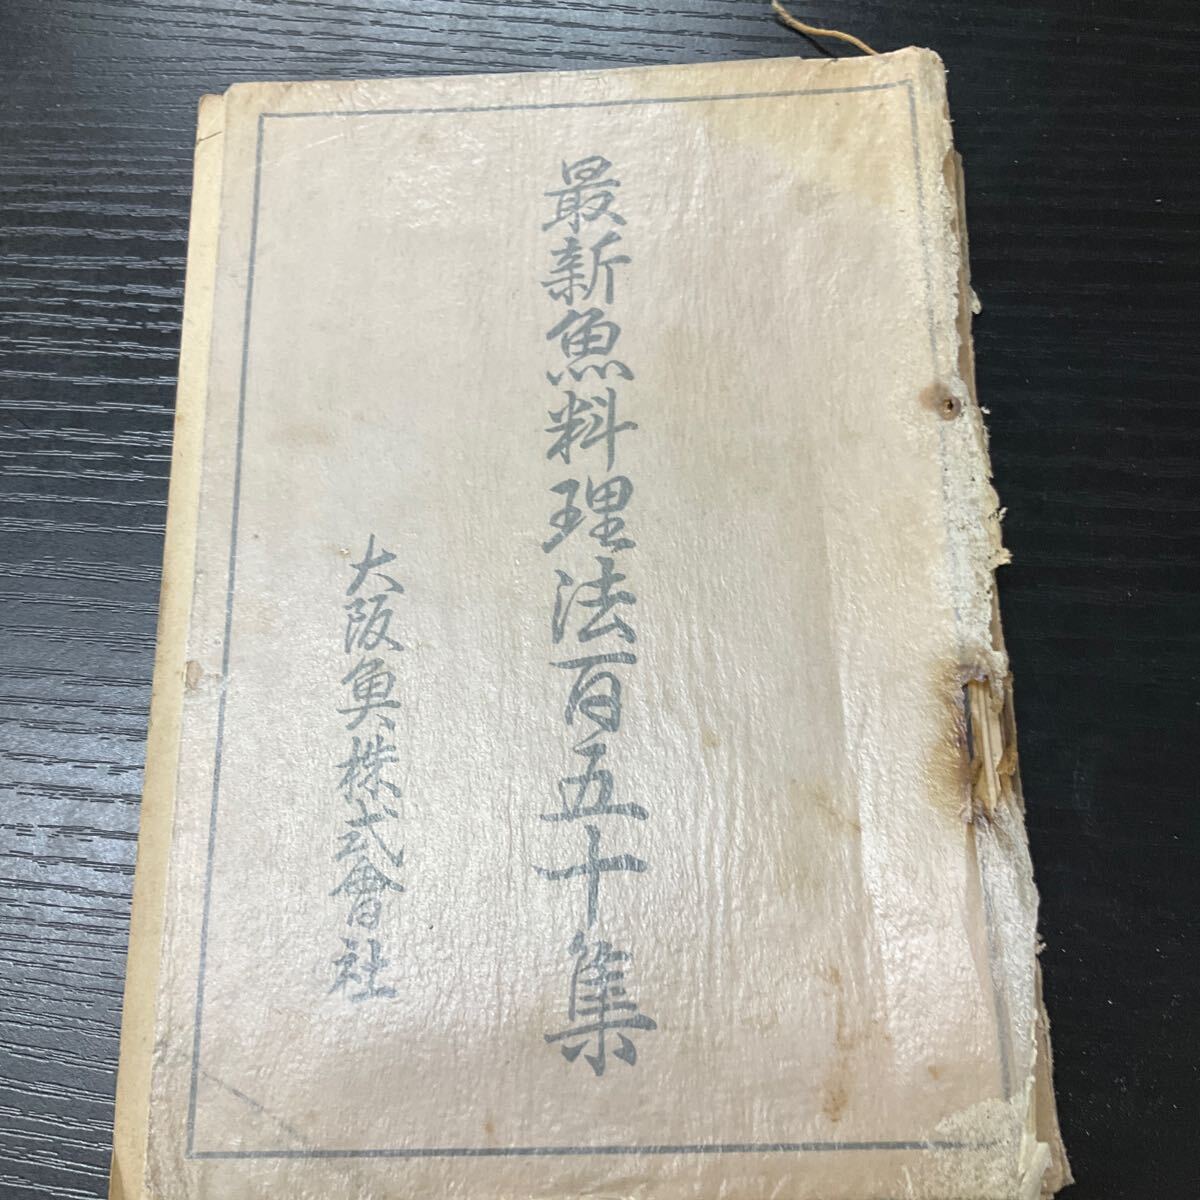 最新魚料理法百五十集
大阪魚株式會社